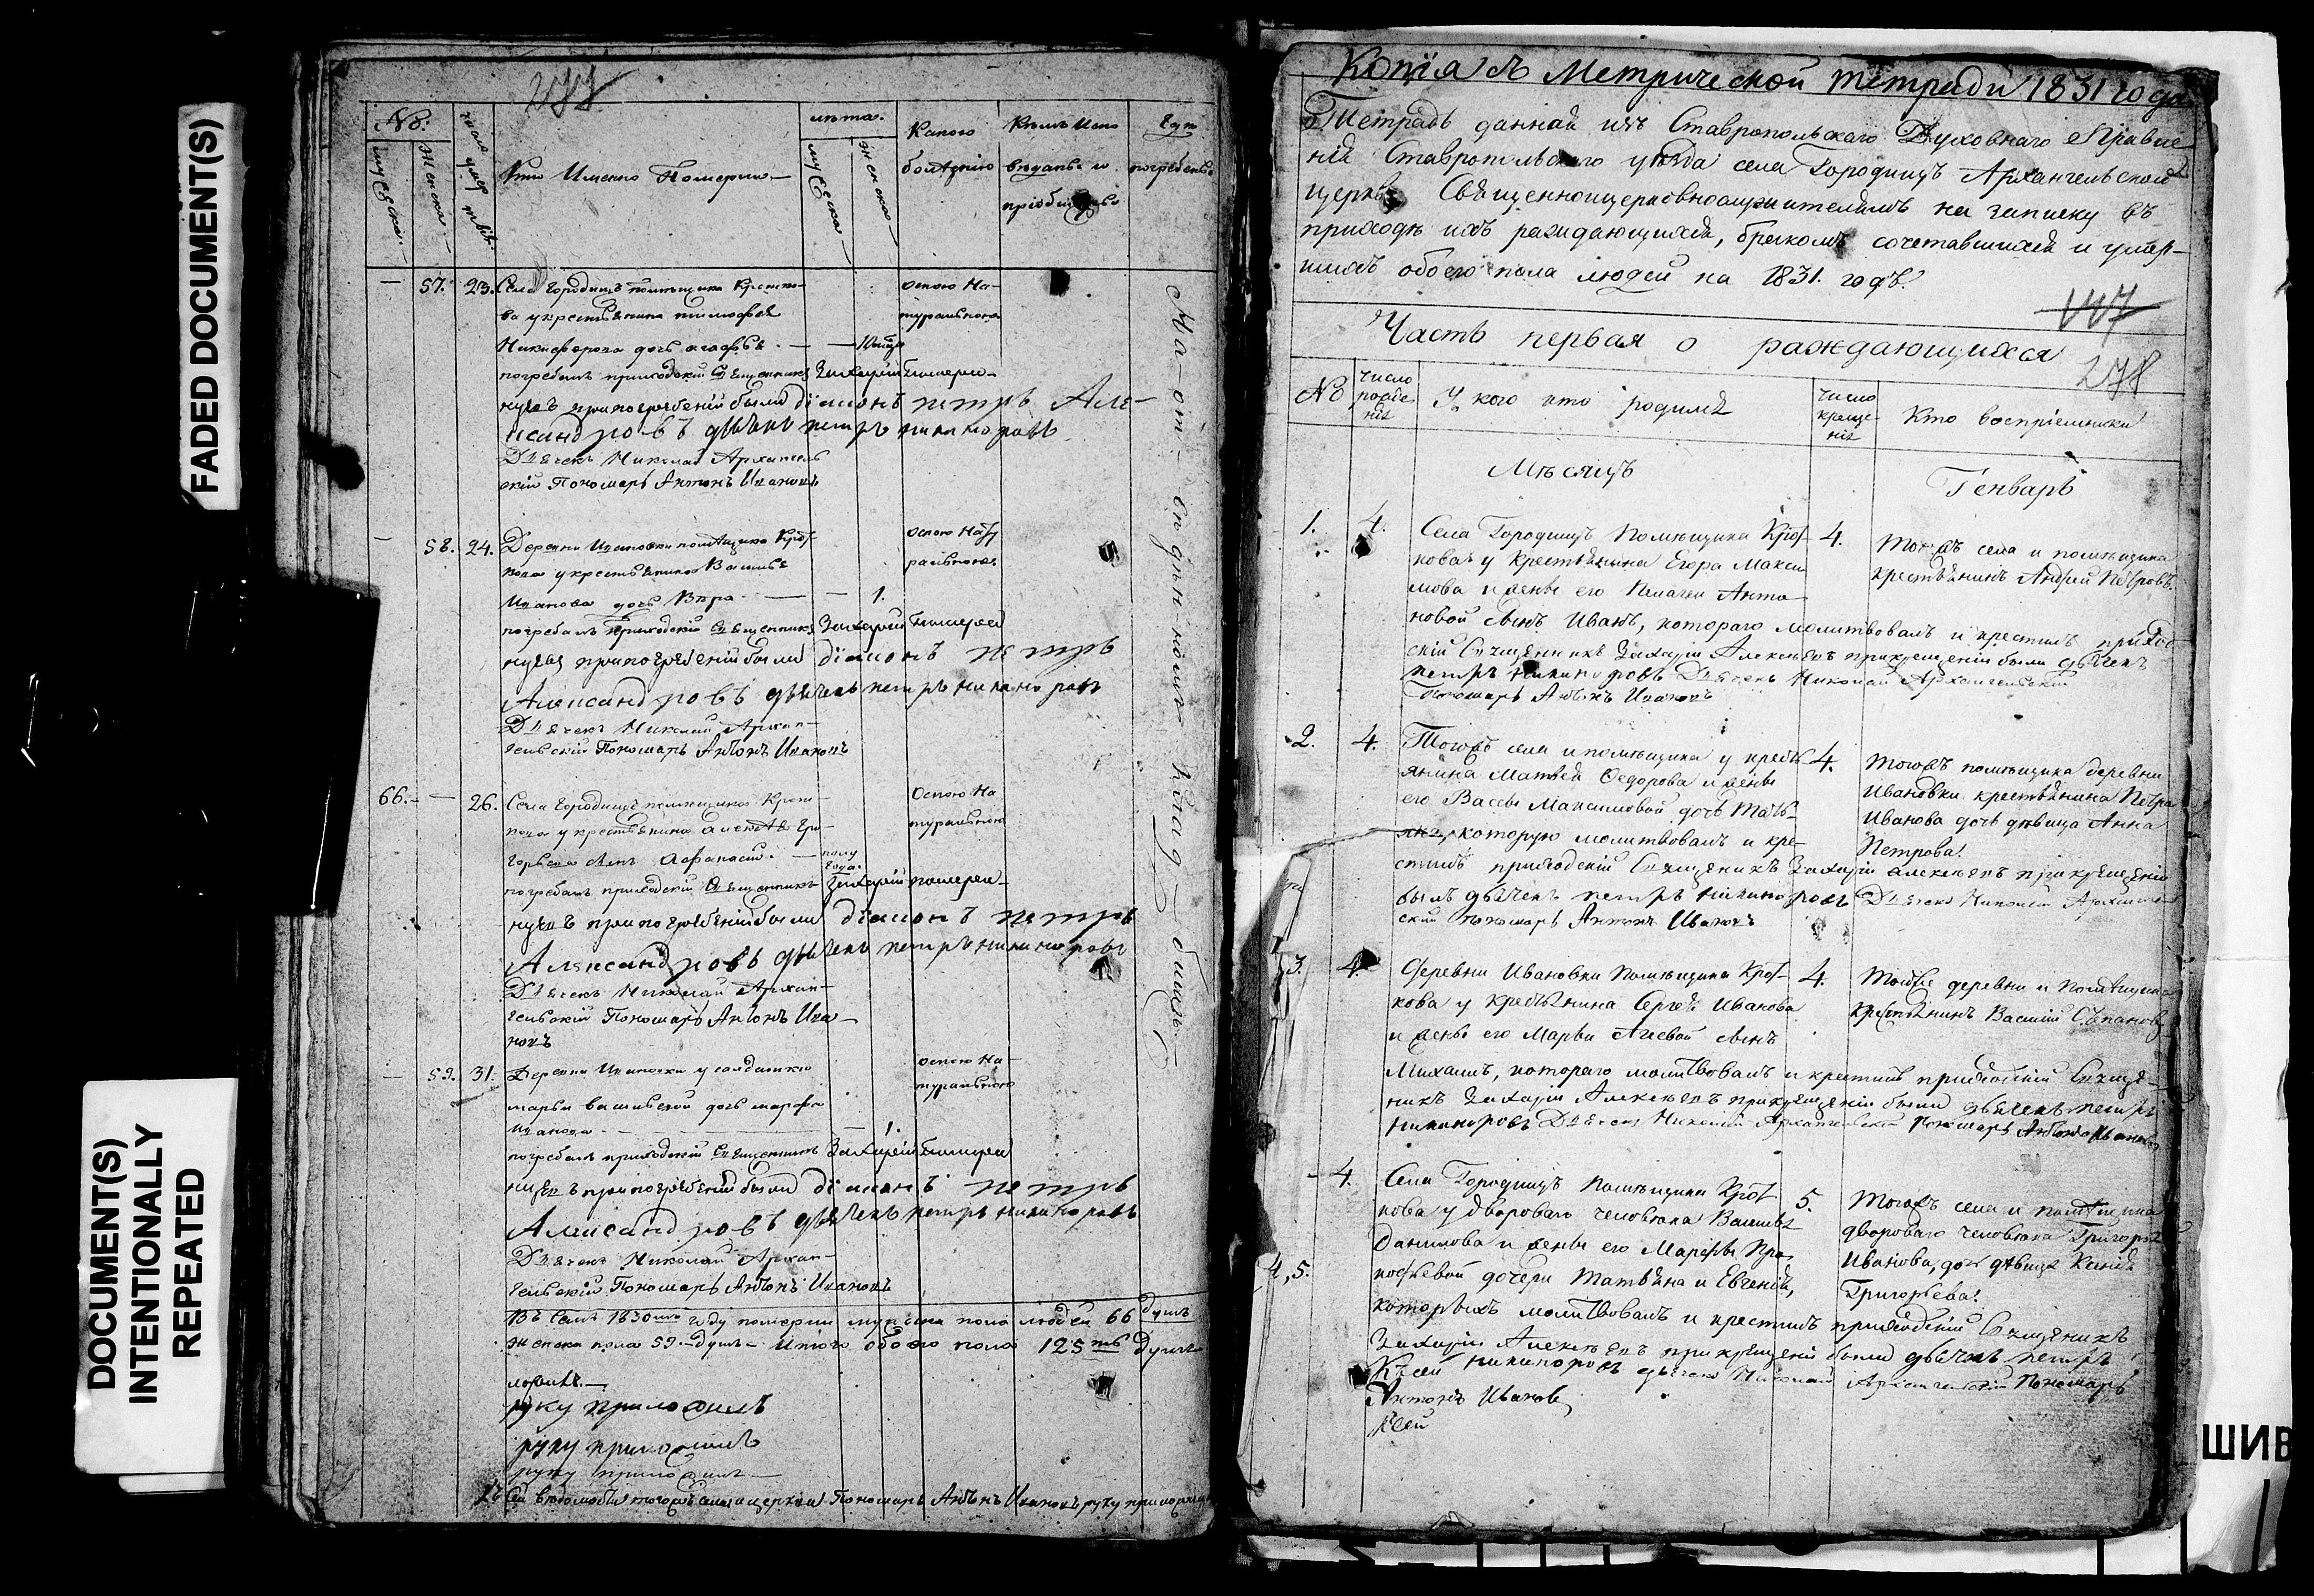 FADED DOCUMENT(S)
DOCUMENT(S)
INTENTIONALLY
REPEATED
277
№:
мужска.
женска.
числа умер
Кто Именно Померли
лѣта.
мужска
женска
Какою
болѣзнію
Кѣмъ Испо
вѣданы и
пріобщены
Гдѣ
погребены
57. 23. Села Городищъ помѣщика Кротко-
ва у крестьянина Тимофея
Никифорова дочь Агафья
Оспою На-
туральною
погребалъ приходскій Священникъ Захарій
при погребеніи были діаконъ петръ Але-
ксандровъ дьячекъ петръ никаноровъ
Дьячекъ Николай Архангель
скій Пономарь Антонъ Ивановъ
58. 24. Деревни Ивановки помѣщика Крот
кова у крестьянина Василья
Иванова дочь Вѣра 1.
Оспою Нату
ральною
погребалъ Приходскій Священникъ Захарій
при погребеніи были діаконъ петръ
Александровъ дьячекъ петръ никаноровъ
Дьячекъ Николай Архан-
гельскій Пономарь Антонъ Ивановъ
66. 26. Села Городищъ помѣщика Крот
кова у крестьянина Алексѣя Гри-
горьева сынъ Афанасій
полу
года.
Оспою На
туральною
погребалъ приходскій Священникъ Захарій
при погребеніи были діаконъ петръ
Александровъ дьячекъ петръ никаноровъ
Дьячекъ Николай Архан-
гельскій Пономарь Антонъ Ива-
новъ
59. 31. Деревни Ивановки у солдатки
Марьи Васильевой дочь Марфа
Иванова 1.
Оспою На-
туральною
погребалъ приходскій Священникъ Захарій
при погребеніи были діаконъ петръ
Александровъ дьячекъ петръ никаноровъ
Дьячекъ Николай Архан-
гельскій Пономарь Антонъ Ивановъ
Въ Семъ 1830мъ году померли мужеска пола людей 66 душъ
женска пола 59 душъ Итого обоего пола 125ть душъ
руку приложилъ
руку приложилъ
руку приложилъ
Къ Сей вѣдомости тогожъ села церкви Пономарь Антонъ Ивановъ руку приложилъ
Копія съ Метрической тетради 1831 года
Тетрадь данная изъ Ставропольскаго Духовнаго Правле
нія Ставропольскаго уѣзда села Городищъ Архангельской
церкви Священноцерковнослужителямъ на записку въ
приходѣ ихъ раждающихся, бракомъ сочетавшихся и умер-
шихъ обоего пола людей на 1831. годъ.
447
278
Часть первая о раждающихся
№
число
рожде-
нія
У кого кто родился
число
креще-
нія
Кто воспріемники
Мѣсяцъ
Генварь
1. 4. Села Городищъ Помѣщика Крот
кова у Крестьянина Егора Макси
мова и жены его Пелагеи Анто
новой сынъ Иванъ, котораго молитвовалъ и крестилъ приход
скій Священникъ Захарій Алексѣевъ при крещеніи были дьячекъ
петръ никаноровъ Дьячекъ Николай Архангельскій
Пономарь Антонъ Ивановъ
4. Тогожъ села и помѣщика
крестьянинъ Андрей Петровъ.
2. 4. Тогожъ села и помѣщика у кресть
янина Матвея Федорова и жены
его Васевы Максимовой дочь Тать-
яна, которую молитвовалъ и кре-
стилъ приходскій Священникъ Захарій Алексѣевъ при крещеніи
былъ дьячекъ петръ никаноровъ Дьячекъ Николай Архангель
скій пономарь Антонъ Ивановъ
4. Тогожъ помѣщика деревни
Ивановки крестьянина Петра
Иванова дочь дѣвица Анна
Петрова.
3. 4. Деревни Ивановки Помѣщика Крот-
кова у крестьянина Сергея Иванова
и жены его Марьи Агеевой сынъ
Михаилъ, котораго молитвовалъ и крестилъ приходскій Священ-
никъ Захарій Алексѣевъ при крещеніи были дьячекъ петръ
никаноровъ Дьячекъ Николай Архангельскій Пономарь Антонъ Ивановъ
4. Тойже деревни и Помѣщика
Крестьянинъ Василій Степановъ
4,5.
4. Села Городищъ Помѣщика Крот
кова у двороваго человѣка Василья
Данилова и жены его Марфы Про
кофьевой дочери Татьяна и Евгенія,
которыхъ молитвовалъ и крестилъ приходскій Священникъ
Захарій Алексѣевъ при крещеніи были дьячекъ петръ
никаноровъ дьячекъ Николай Архангельскій Пономарь
Антонъ Ивановъ
5. Тогожъ села и помѣщика
двороваго человѣка Григорья
Иванова, дочь дѣвица Ксенія
Григорьева.
Къ сей
ШИВ